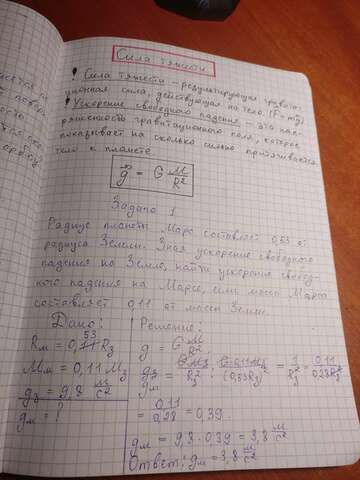 Сила тяжести
! Сила тяжести – результирующая грави-
ционная сила, действующая на тело. (F=mg)
! Ускорение свободного падения – это нап-
ряженность гравитационного поля, которое
показывает на сколько сильно притягивается
тело к планете
g = G M/R²
Задача 1
Радиус планеты Марс составляет 0,53 от
радиуса Земли. Зная ускорение свободного
падения на Земле, найти ускорение свобод-
ного падения на Марсе, если масса Марса
составляет 0,11 от массы Земли.
Дано:
Rм = 0,53 Rз
Mм = 0,11 Mз
gз = 9,8 м/с²
gм = ?
Решение:
g = GM/R²
gз/gм = GMз/Rз² : G·0,11Mз/(0,53Rз)² = 1/Rз² = 0,11/0,28Rз²
= 0,11/0,28 = 0,39
gм = 9,8 · 0,39 = 3,8 м/с²
Ответ: gм = 3,8 м/с²